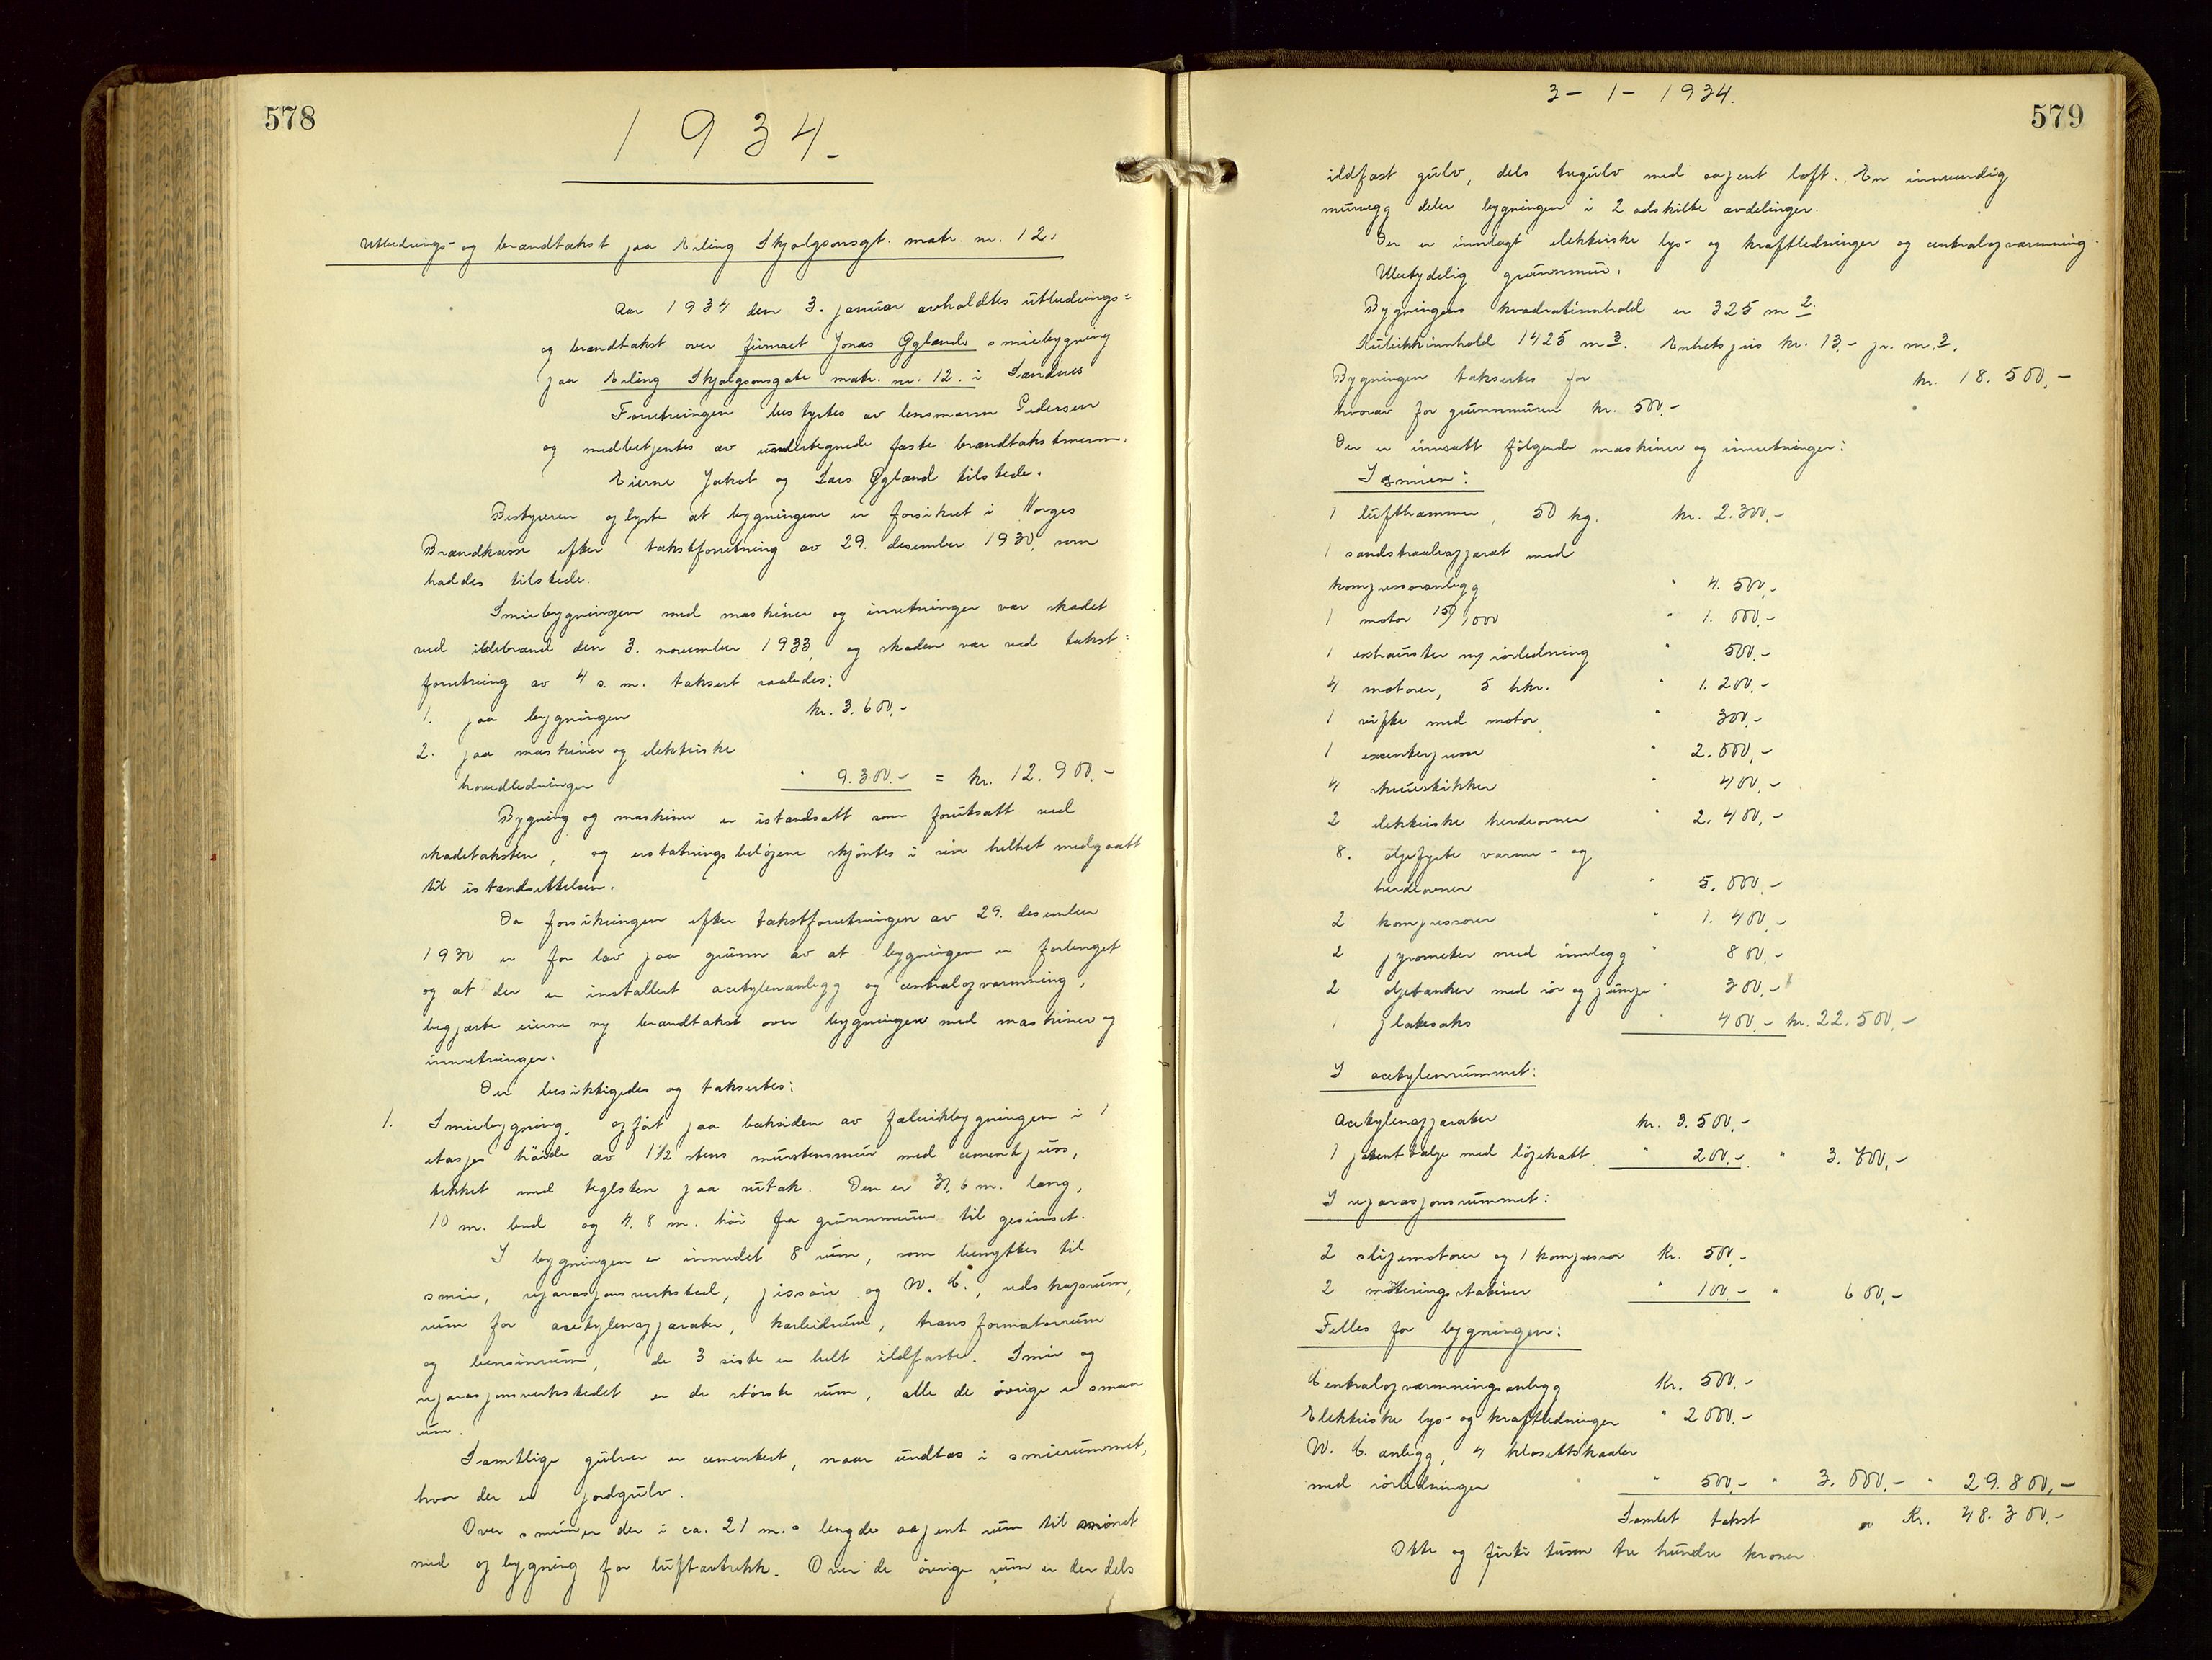 578
1934.-
Utbedrings- og brandtakst paa Erling Skjalgsonsgt. matr nr. 12.
Aar 1934 den 3. januar avholdtes utbedrings-
og brandtakst over firmaet Jonas Øglænds smiebygning
paa Erling Skjalgsonsgate matr. nr. 12. i Sandnes
Forretningen bestyrtes av lensmann Pedersen
og medbetjentes av undertegnede faste brandtakstmenn.
Eierne Jakob og Lars Øgland tilstede.
Bestyreren oplyste at bygningene er forsikret i Norges
Brandkasse efter takstforretning av 29. desember 1930, som
haddes tilstede.
Smiebygningen med maskiner og inretninger var skadet
ved ildebrand den 3. november 1933, og skaden var ved takst-
forretning av 4 s. m. taksert saaledes:
1. paa bygningen kr. 3.600,-
2. paa maskiner og elektriske
hovedledninger " 9.300.- = kr. 12.900.-
Bygning og maskiner er istandsatt som forutsatt ved
skadetaksten, og erstatningsbeløpene skjøntes i sin helhet medgaatt
til istandsettelsen.
Da forsikringen efter takstforretningen av 29. desember
1930 er for lav paa grunn av at bygningen er forlenget
og at der er installert acetylenanlegg og centralopvarmning,
begjærte eierne ny brandtakst over bygningen med maskiner og
innretninger.
Der besiktigedes og taksertes:
1. Smiebygning, opført paa baksiden av fabrikbygningen i 1
etasjes høide av 1 1/2 stens murstensmur med cementpuss,
tekket med teglsten paa sutak. Den er 31,6 m. lang,
10 m. bred og 4.8 m. høi fra grunnmuren til gesimset.
I bygningen er innredet 8 rum, som benyttes til
smie, reparasjonsverksted, pissoir og W. C., redskapsrum,
rum for acetylenapparater, karbidrum, transformatorrum
og bensinrum, de 3 siste er helt ildfaste. Smie og
reparasjonsverkstedet er de største rum, alle de øvrige er smaa
rum.
Samtlige gulver er cementert, naar undtas i smierummet,
hvor der er jordgulv.
Over smien er der i ca. 21 m.s lengde aapent rum til mønet
med opbygning for luftavtrekk. Over de øvrige rum er der dels
3 - 1 - 1934.
579
ildfast gulv, dels tregulv med aapent loft. En innvendig
murvegg deler bygningen i 2 adskilte avdelinger.
Der er innlagt elektriske lys- og kraftledninger og centralopvarmning.
Ubetydelig grunnmur.
Bygningens kvadratinnhold er 325 m 2.
Kubikkinnhold 1425 m 3. Enhetspris kr. 13,- pr. m. 3.
Bygningen taksertes for kr. 18.500,-
hvorav for grunnmuren kr. 500.-
Der er innsatt følgende maskiner og innretninger:
I smien:
1 lufthammer, 50 kg. kr. 2.300,-
1 sandstraaleapparat med
kompressoranlegg " 4.500,-
1 motor 15/1000 " 1.000,-
1 exhauster m/rørledning " 500,-
4 motorer, 5 hkr. " 1.200,-
1 vifte med motor " 300,-
1 excenterpresse " 2.000,-
4 skruestikker " 400,-
2 elektriske herdeovner " 2.400,-
8. oljefyrte varme- og
herdeovner " 5.000,-
2 kompressorer " 1.400,-
2 pyrometer med innlegg " 800,-
2 oljetanker med rør og pumpe " 300,-
1 platesaks " 400,- kr. 22.500,-
I acetylenrummet:
Acetylenapparater kr. 3.500,-
1 patent talje med løpekatt " 200.- " 3.700,-
I reparasjonsrummet:
2 slipemotorer og 1 kompressor Kr. 500,-
2 monteringsstativer " 100.- " 600,-
Felles for bygningen:
Centralopvarmningsanlegg Kr. 500.-
Elektriske lys- og kraftledninger " 2000.-
W. C. anlegg, 4 klosettskaaler
med rørledninger " 500,- " 3.000,- " 29.800,-
Samlet takst Kr. 48.300,-
Otte og førti tusen tre hundre kroner.